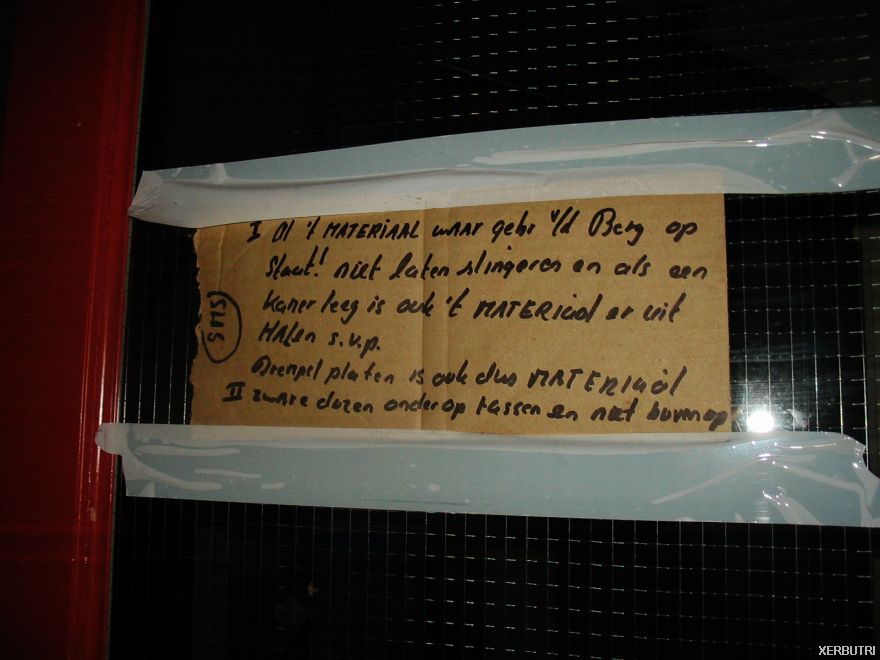 I Al 't MATERiAAL waar gebr v/d Berg op
staat! niet laten slingeren en als een
kamer leeg is ook 't MATERiaal er uit
HAlen s.v.p.
Drempel platen is ook dus MATERiaal
II zware dozen onderop tassen en niet bovenop
SMS
XERBUTRI